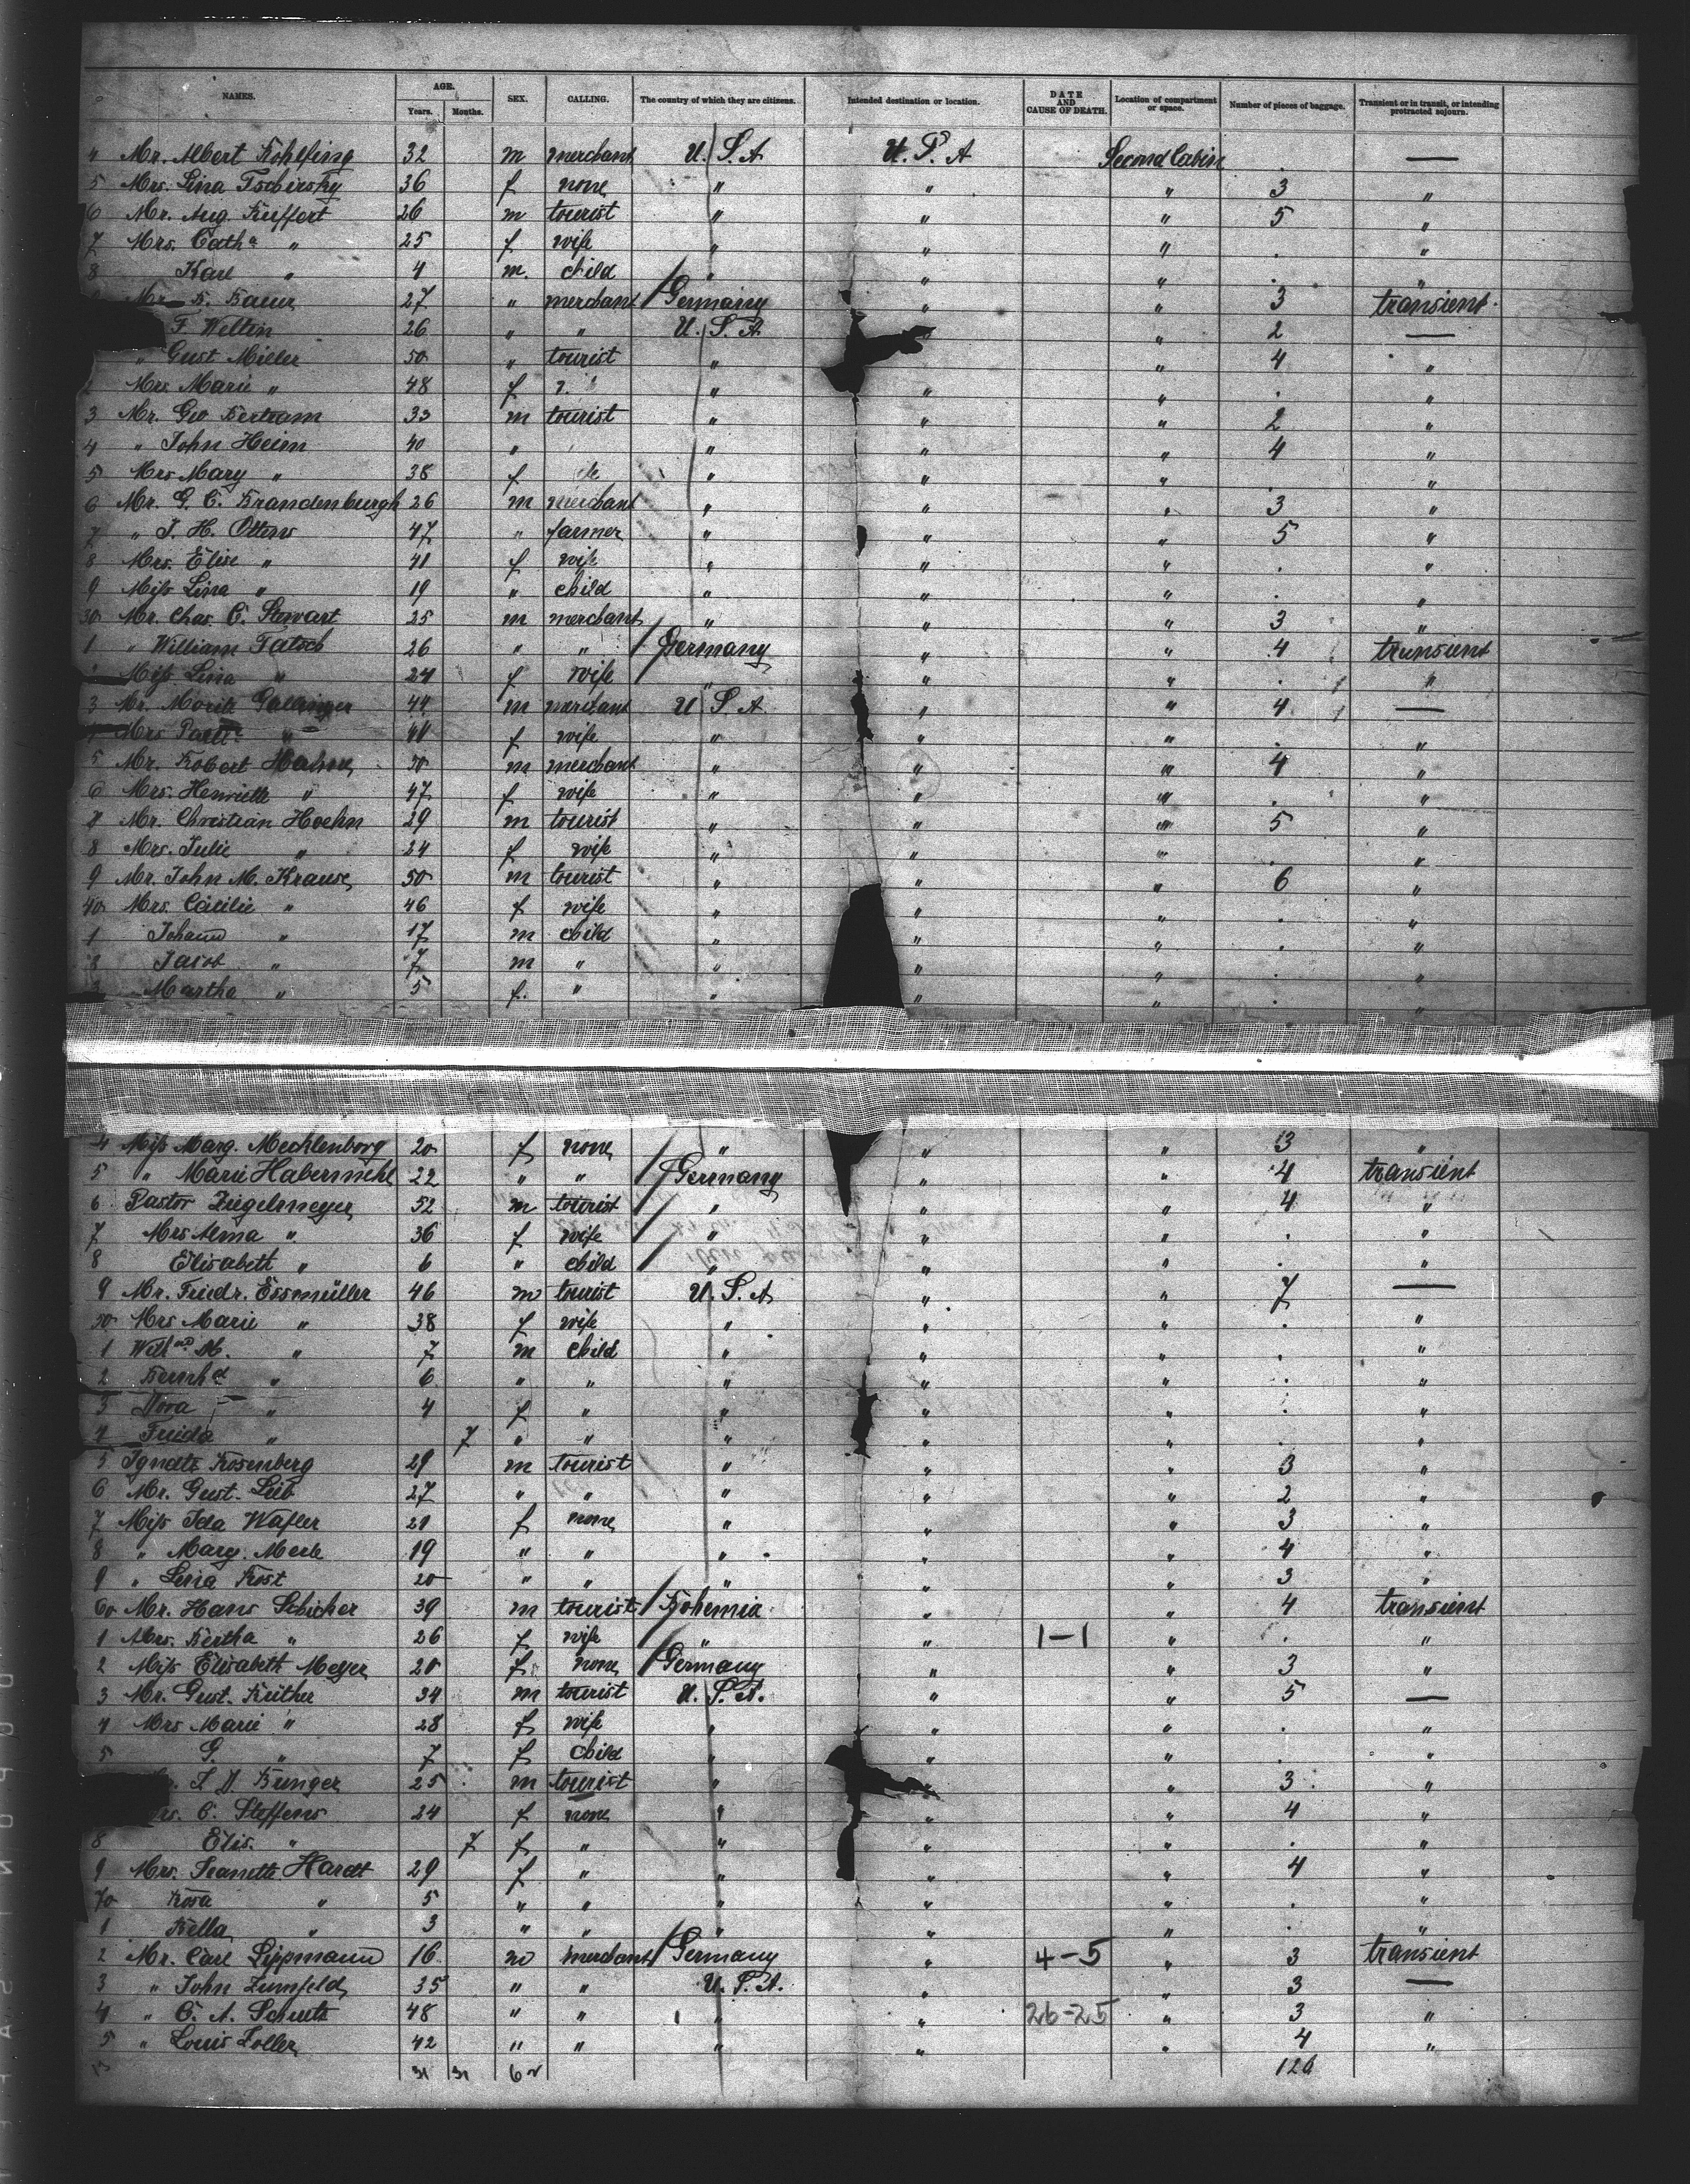 NAMES. AGE. Years. Months. SEX. CALLING. The country of which they are citizens. Intended destination or location. DATE AND CAUSE OF DEATH. Location of compartment or space. Number of pieces of baggage. Transient or in transit, or intending protracted sojourn.
4 Mr. Albert Kohlfing 32 m merchant U.S.A U.S.A Second Cabin —
5 Mrs. Lina Tschirsky 36 f none " " " 3 "
6 Mr. Aug. Kuffert 26 m tourist " " " 5 "
7 Mrs. Catha " 25 f wife " " " . "
8 Karl " 4 m. child " " " . "
Mr. K. Bauer 27 " merchant Germany " " 3 transient.
F. Weltin 26 " " U.S.A " " 2 —
" Gust Miller 50 " tourist " " 4 "
2 Mrs Marie " 48 f " " " . "
3 Mr. Geo Bertram 33 m tourist " " " 2 "
4 " John Heim 40 " " " " 4 "
5 Mrs Mary " 38 f " " " . "
6 Mr. G. C. Brandenburgh 26 m merchant " " " 3 "
7 " J. H. Ottens 47 " farmer " " " 5 "
8 Mrs. Elise " 41 f wife " " " . "
9 Miss Lina " 19 " child " " " . "
30 Mr. Chas. C. Stewart 25 m merchant " " " 3 "
1 " William Tatsch 26 " " Germany " " 4 transient
Miss Lina " 24 f wife " " " . "
3 Mr. Moritz Gallinger 44 m merchant U.S.A. " " 4 —
Mrs " 41 f wife " " " . "
5 Mr. Robert Hahn 50 m merchant " " " 4 "
6 Mrs. Henriette " 47 f wife " " " . "
7 Mr. Christian Hoehn 29 m tourist " " " 5 "
8 Mrs. Julie " 24 f wife " " " . "
9 Mr. John M. Krause 50 m tourist " " " 6 "
40 Mrs. Cäcilie " 46 f wife " " " . "
1 Johann " 17 m child " " " . "
2 Jacob " 7 m " " " " . "
3 Martha " 5 f. " " " " . "
4 Miss Marg. Mecklenborg 20 f none " " " 3 "
5 " Marie Habermehl 22 " " Germany " " 4 transient
6 Pastor Ziegelmeyer 52 m tourist " " " 4 "
7 Mrs Alma " 36 f wife " " " . "
8 Elisabeth " 6 " child " " " . "
9 Mr. Friedr. Essmüller 46 m tourist U.S.A " " 7 —
50 Mrs Marie " 38 f wife " " " . "
1 Wilh. M. " 7 m child " " " . "
2 Bernhd " 6 " " " " " . "
3 Nora " 4 f " " " " . "
4 Frieda " 7 " " " " " . "
5 Ignatz Rosenberg 29 m tourist " " " 3 "
6 Mr. Gust. Leib 27 " " " " " 2 "
7 Miss Ida Wafler 21 f none " " " 3 "
8 " Marg. Merle 19 " " " " " 4 "
9 " Lena Kost 20 " " " " " 3 "
60 Mr. Hans Schicker 39 m tourist Bohemia " " 4 transient
1 Mrs. Bertha " 26 f wife " " 1-1 " . "
2 Miss Elisabeth Meyer 20 f. none Germany " " 3 "
3 Mr. Gust. Küther 34 m tourist U.S.A. " " 5 —
4 Mrs Marie " 28 f wife " " " . "
5 G. " 7 f child " " " . "
J. D. Bunger 25 m tourist " " " 3 "
C. Steffens 24 f none " " " 4 "
8 Elis. " 7 f " " " " . "
9 Mrs. Jeanette Hardt 29 f " " " " 4 "
70 Rosa " 5 " " " " " . "
1 Bella " 3 " " " " " . "
2 Mr. Carl Lippmann 16 m merchant Germany " 4-5 " 3 transient
3 " John Zumfeld 35 " " U.S.A. " " 3 —
4 " C. A. Schultz 48 " " " " 26-25 " 3 "
5 " Louis Zoller 42 " " " " " 4 "
31 31 62 126